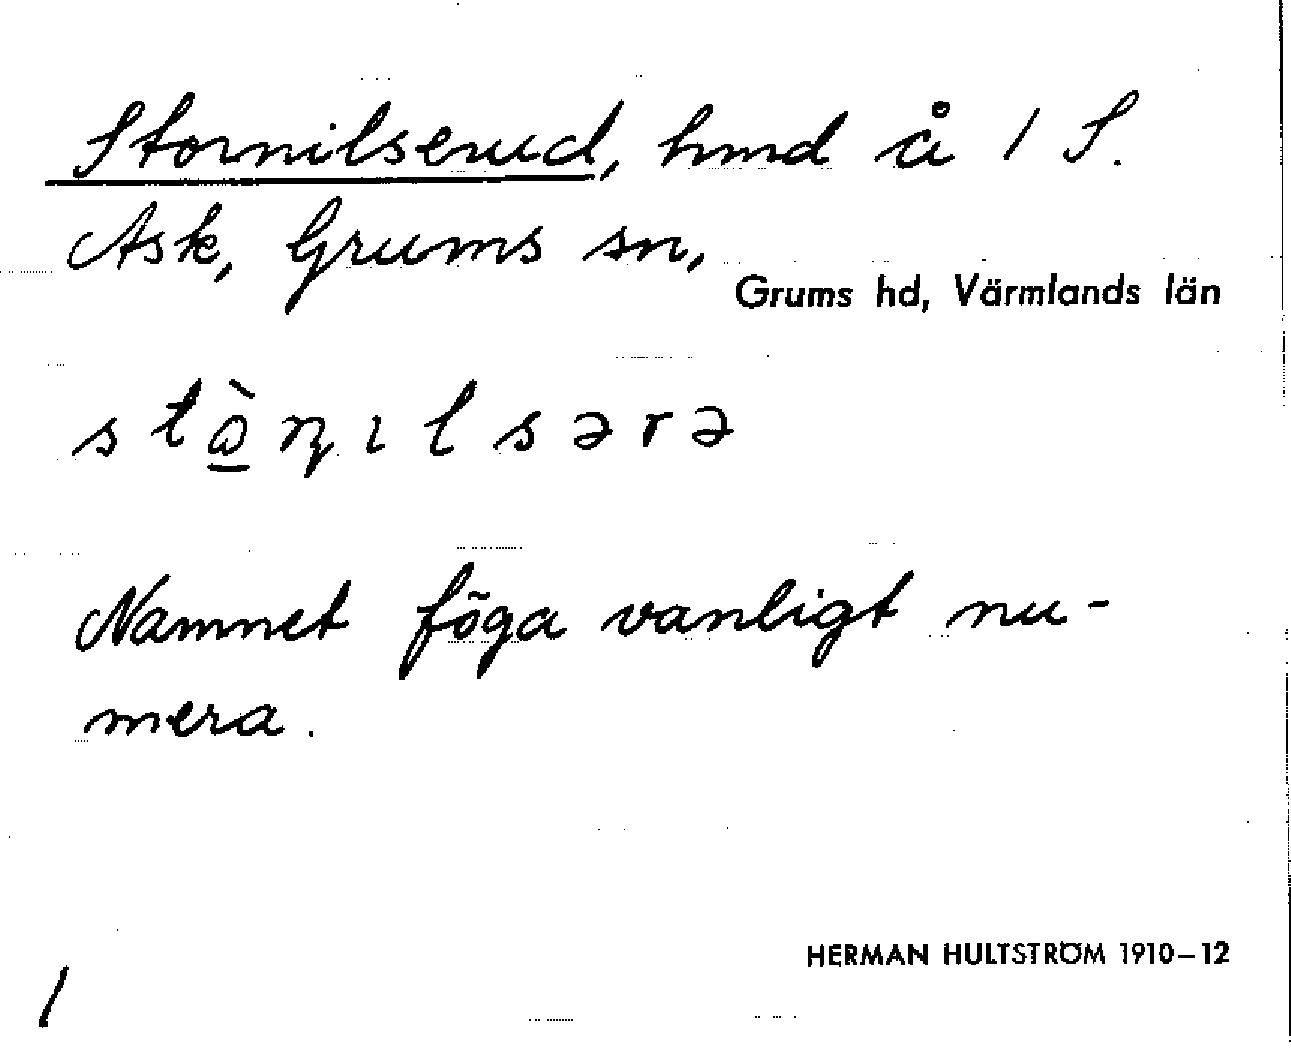 Stornilserud, hmd å 1 S.
Ask, Grums sn,
Grums hd, Värmlands län
stò̱ɳɩlsərə
Namnet föga vanligt nu-
mera.
HERMAN HULTSTRÖM 1910–12
1